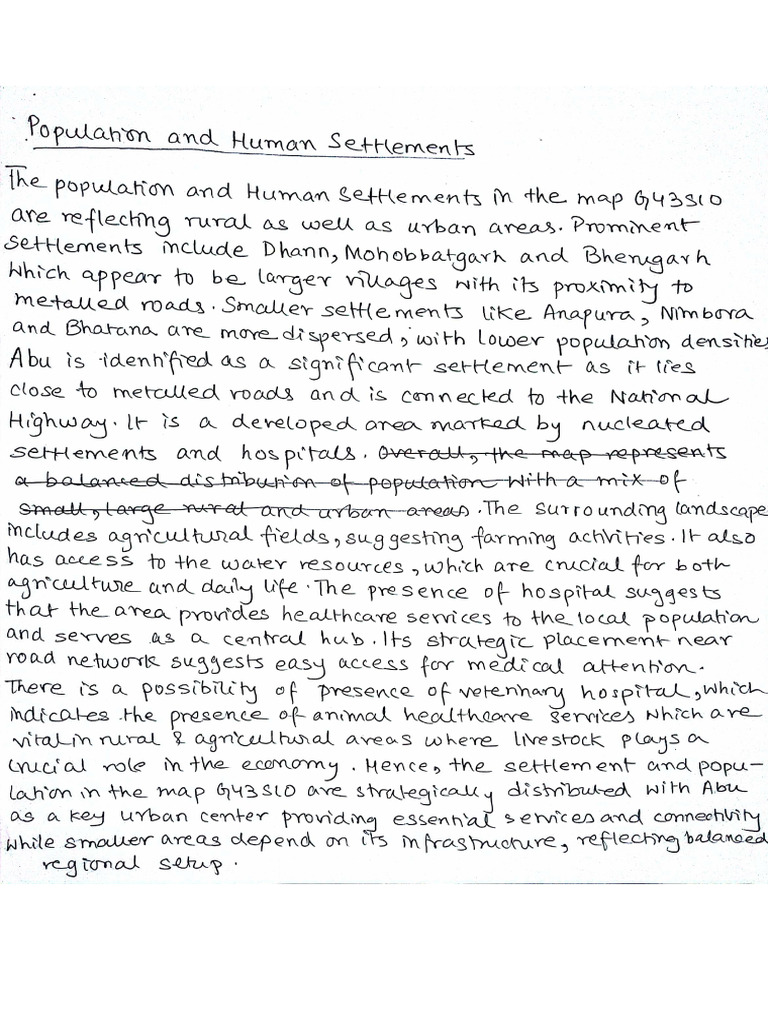 Population and Human Settlements
The population and Human Settlements in the map G43S10
are reflecting rural as well as urban areas. Prominent
Settlements include Dhann, Mohobbatgarh and Bherugarh
Which appear to be larger villages with its proximity to
metalled roads. Smaller settlements like Anapura, Nimbora
and Bhatana are more dispersed, with lower population densities
Abu is identified as a significant settlement as it lies
close to metalled roads and is connected to the National
Highway. It is a developed area marked by nucleated
settlements and hospitals. Overall, the map represents
a balanced distribution of population with a mix of
small, large rural and urban areas. The surrounding landscape
includes agricultural fields, suggesting farming activities. It also
has access to the water resources, which are crucial for both
agriculture and daily life. The presence of hospital suggests
that the area provides healthcare services to the local population
and serves as a central hub. Its strategic placement near
road network suggests easy access for medical attention.
There is a possibility of presence of veterinary hospital, which
indicates the presence of animal healthcare services which are
vital in rural & agricultural areas where livestock plays a
crucial role in the economy. Hence, the settlement and popu-
lation in the map G43S10 are strategically distributed with Abu
as a key urban center providing essential services and connectivity
while smaller areas depend on its infrastructure, reflecting balanced
regional setup.